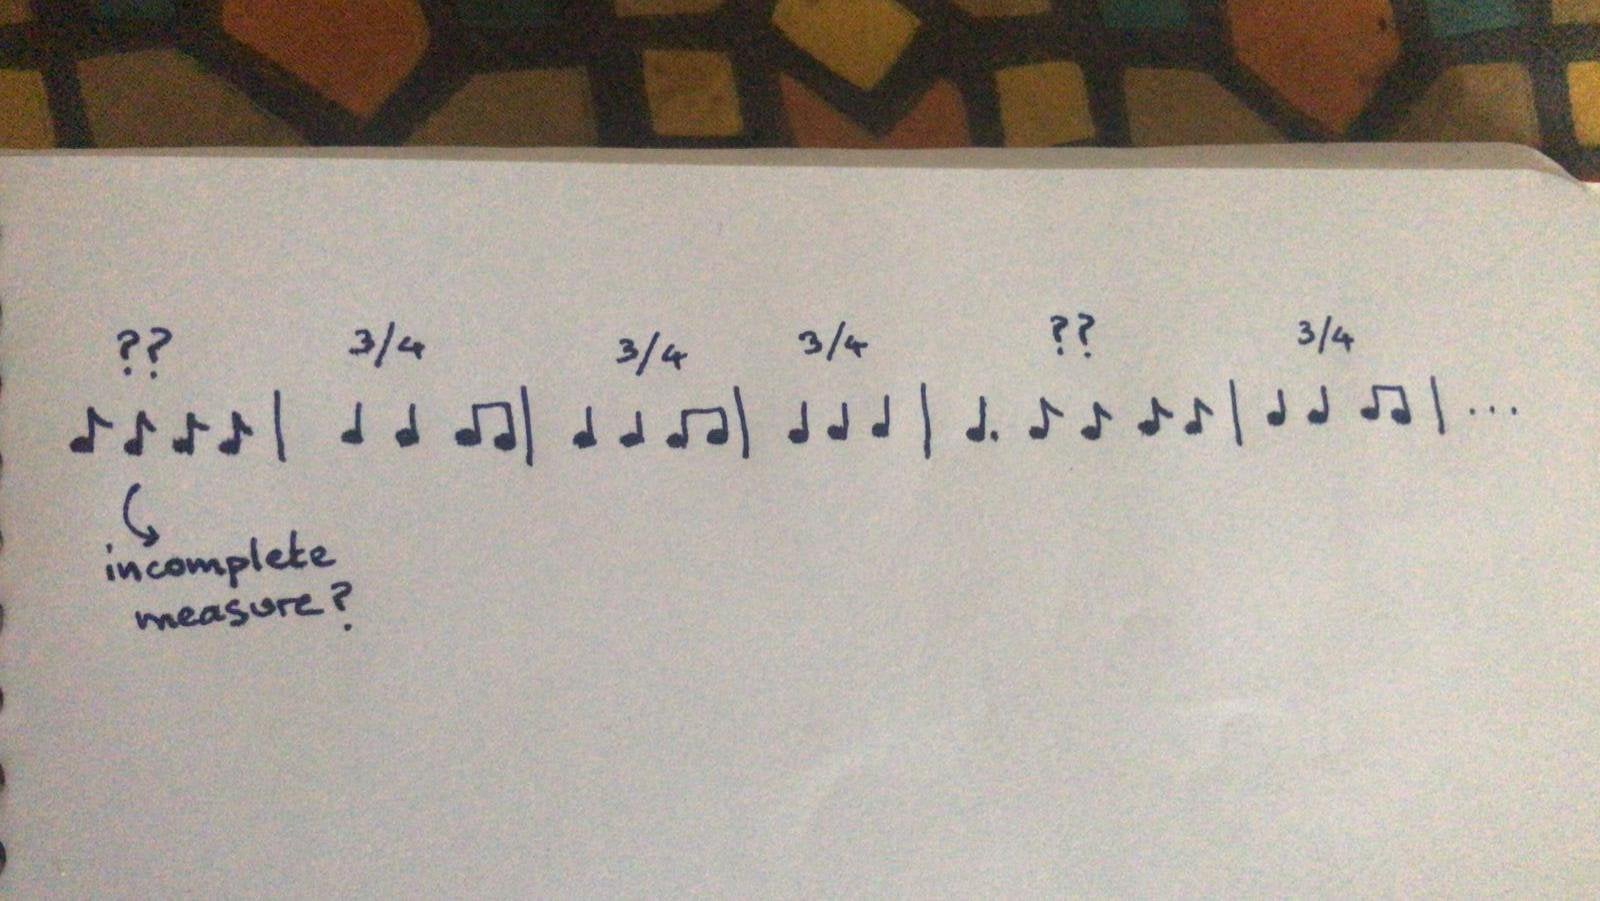 ?? 3/4 3/4 3/4 ?? 3/4
♪ ♪ ♪ ♪ | ♩ ♩ ♫ | ♩ ♩ ♫ | ♩ ♩ ♩ | ♩. ♪ ♪ ♪ ♪ | ♩ ♩ ♫ | ...
incomplete
measure?